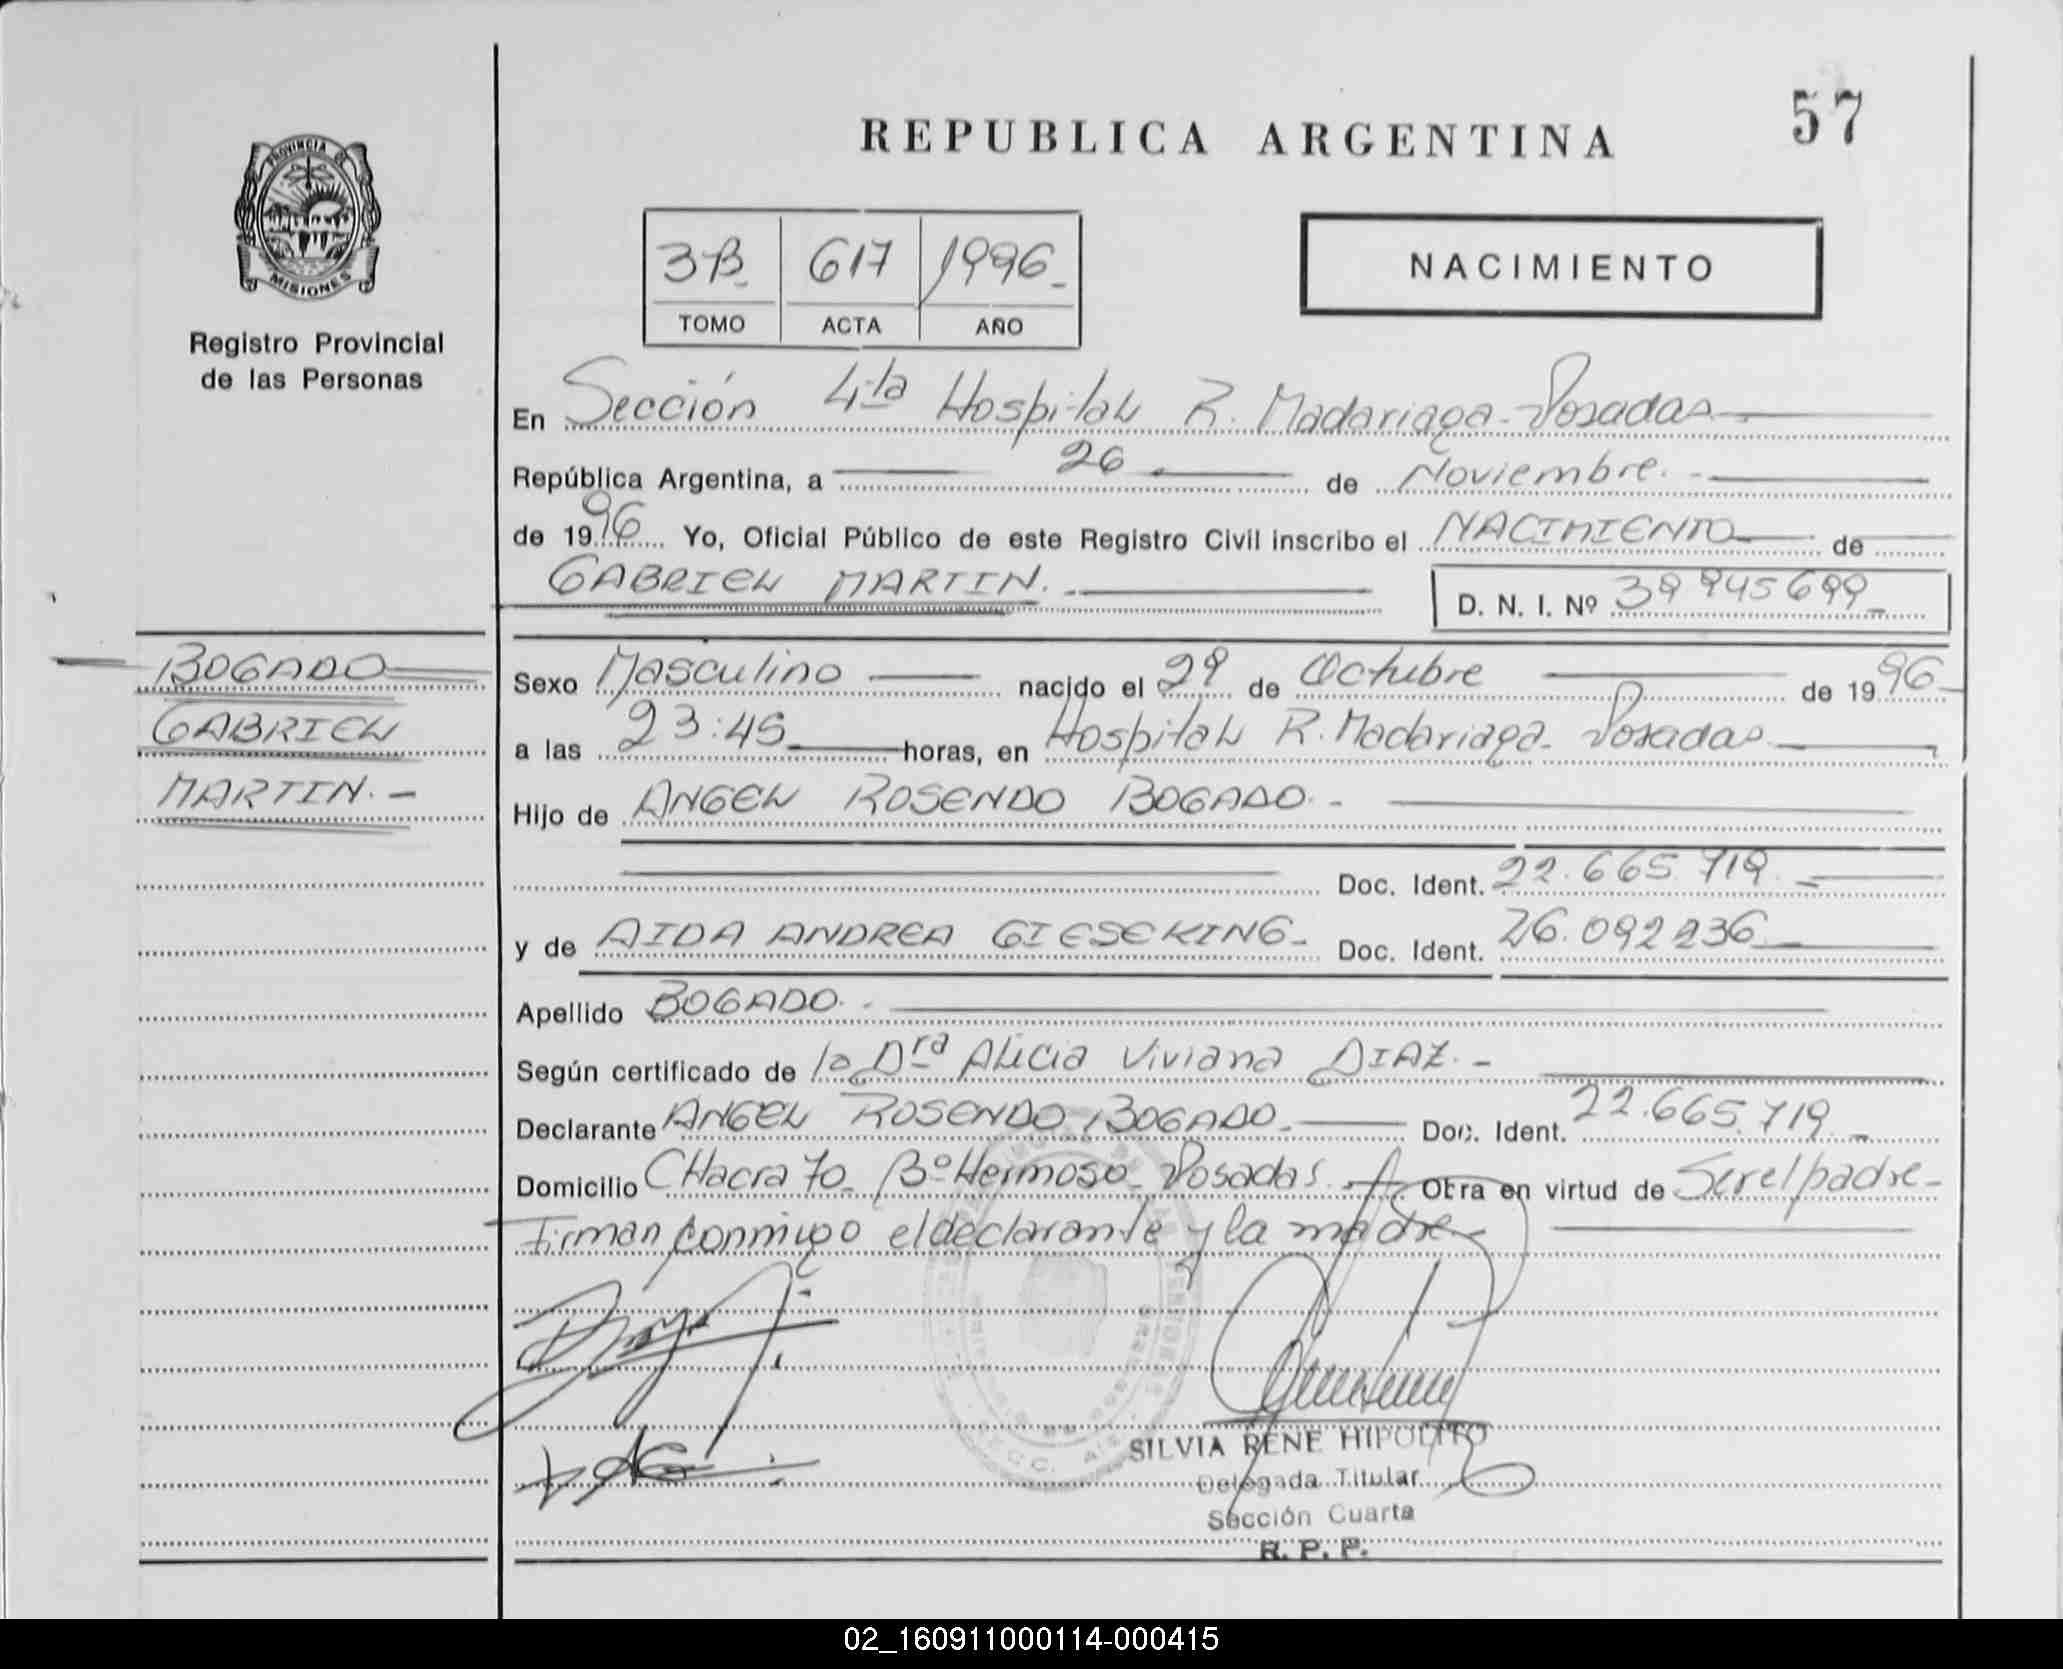 57
REPUBLICA ARGENTINA
PROVINCIA DE
MISIONES
Registro Provincial
de las Personas
3B. 617 1996_
TOMO ACTA AÑO
NACIMIENTO
En Sección 4ta Hospital R. Madariaga - Posadas
República Argentina, a 26 de Noviembre.
de 1996 Yo, Oficial Público de este Registro Civil inscribo el NACIMIENTO de
GABRIEL MARTIN. D. N. I. Nº 39 945 699_
BOGADO
GABRIEL
MARTIN. -
Sexo Masculino nacido el 29 de Octubre de 1996
a las 23:45 horas, en Hospital R. Madariaga - Posadas
Hijo de ANGEL ROSENDO BOGADO. -
Doc. Ident. 22.665.719
y de AIDA ANDREA GIESEKING - Doc. Ident. 26.092.236
Apellido BOGADO. -
Según certificado de la Dra Alicia Viviana DIAZ. -
Declarante ANGEL ROSENDO BOGADO Doc. Ident. 22.665.719. -
Domicilio CHacra 70_ Bº Hermoso_ Posadas. Otra en virtud de Ser el padre -
Firman conmigo el declarante y la madre. -
SILVIA RENE HIPOLITO
Delegada Titular
Sección Cuarta
R. P. P.
02_160911000114-000415